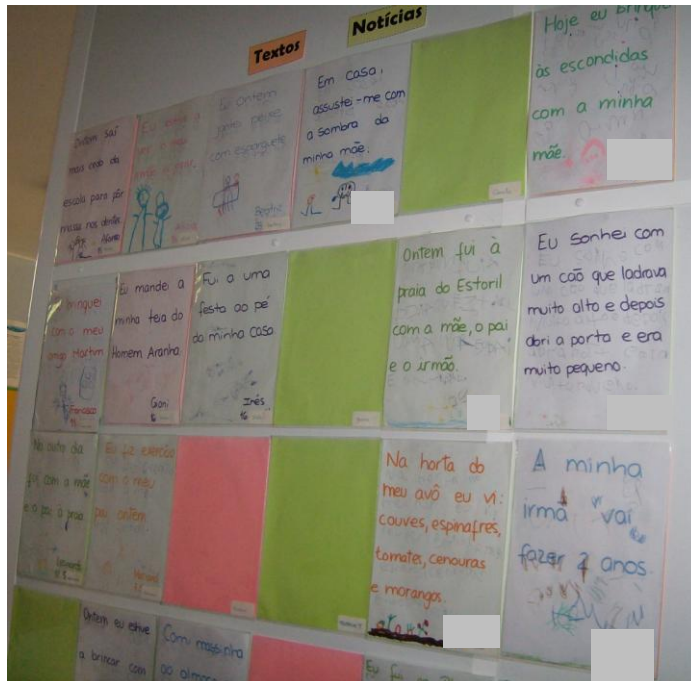 Textos
Notícias
Ontem saí
mais cedo da
escola para pôr
massa nos dentes
Afonso
Eu ontem
jantei peixe
com esparguete
Em casa,
assustei-me com
a sombra da
minha mãe.
Hoje eu brinquei
às escondidas
com a minha
mãe.
brinquei
com o meu
amigo Martim
Francisco
Eu mandei a
minha teia do
Homem Aranha
Giani
Fui a uma
festa ao pé
da minha casa
Inês
Ontem fui à
praia do Estoril
com a mãe, o pai
e o irmão.
Eu sonhei com
um cão que ladrava
muito alto e depois
abri a porta e era
muito pequeno.
No outro dia
fui com a mãe
e o pai à praia
Leonardo
Eu fiz exercício
com o meu
pai ontem
Na horta do
meu avô eu vi:
couves, espinafres,
tomates, cenouras
e morangos.
A minha
irmã vai
fazer 2 anos.
Ontem eu estive
a brincar com
Comi massinha
ao almoço
Eu fui ao